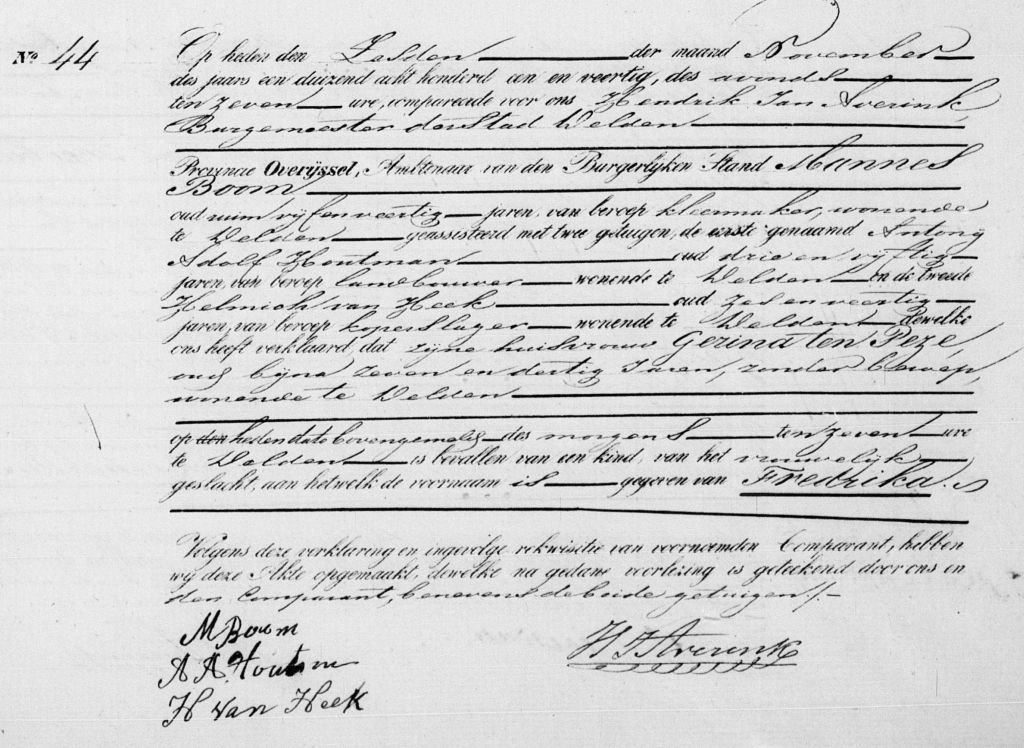 No 44
Op heden den Zesden der maand November
des jaars een duizend acht honderd een en veertig, des avonds
ten zeven ure, compareerde voor ons Hendrik Jan Averink,
Burgemeester der Stad Delden
Provincie Overijssel, Amktenaar van den Burgerlijken Stand Mannes
Boom
oud ruim vijf en veertig jaren, van beroep kleermaker, wonende
te Delden geassisteerd met twee getuigen, de eerste genaamd Antony
Adolf Houtman oud drie en vijftig
jaren, van beroep landbouwer wonende te Delden en de tweede
Helmich van Heek oud zes en veertig
jaren, van beroep koperslager wonende te Delden dewelke
ons heeft verklaard, dat zijne huisvrouw Gezina ten Peze,
oud bijna zeven en dertig Jaren, zonder beroep,
wonende te Delden
op den heden dato bovengemeld des morgens ten zeven ure
te Delden is bevallen van een kind, van het vrouwelijk
geslacht, aan hetwelk de voornaam is gegeven van Fredrika.
Volgens deze verklaring en ingevolge rekwisitie van voornoemden Comparant, hebben
wij deze Akte opgemaakt, dewelke na gedane voorlezing is geteekend door ons en
den Comparant, benevens de beide getuigen./-
M Boom
A A Houtm
H van Heek
H J Averink